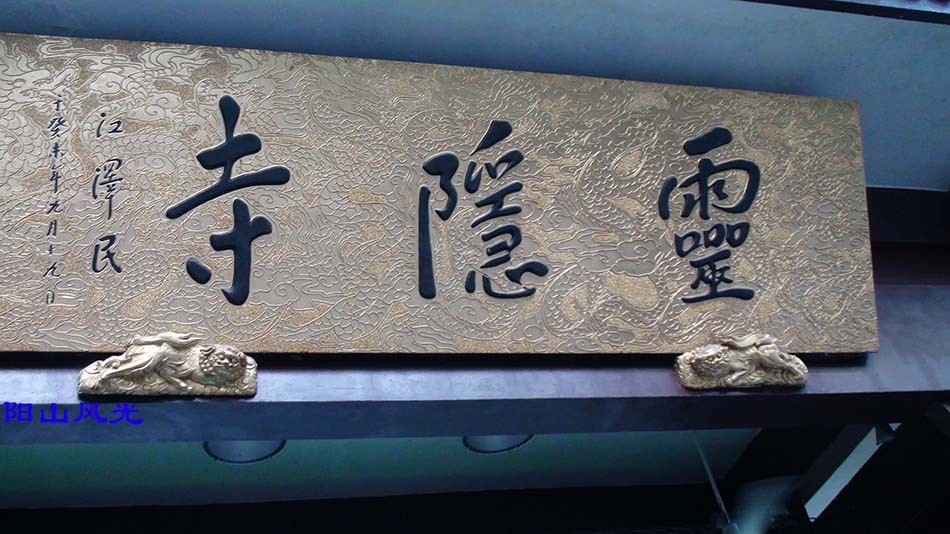 靈隱寺
江澤民
癸未年九月十九日
阳山风光